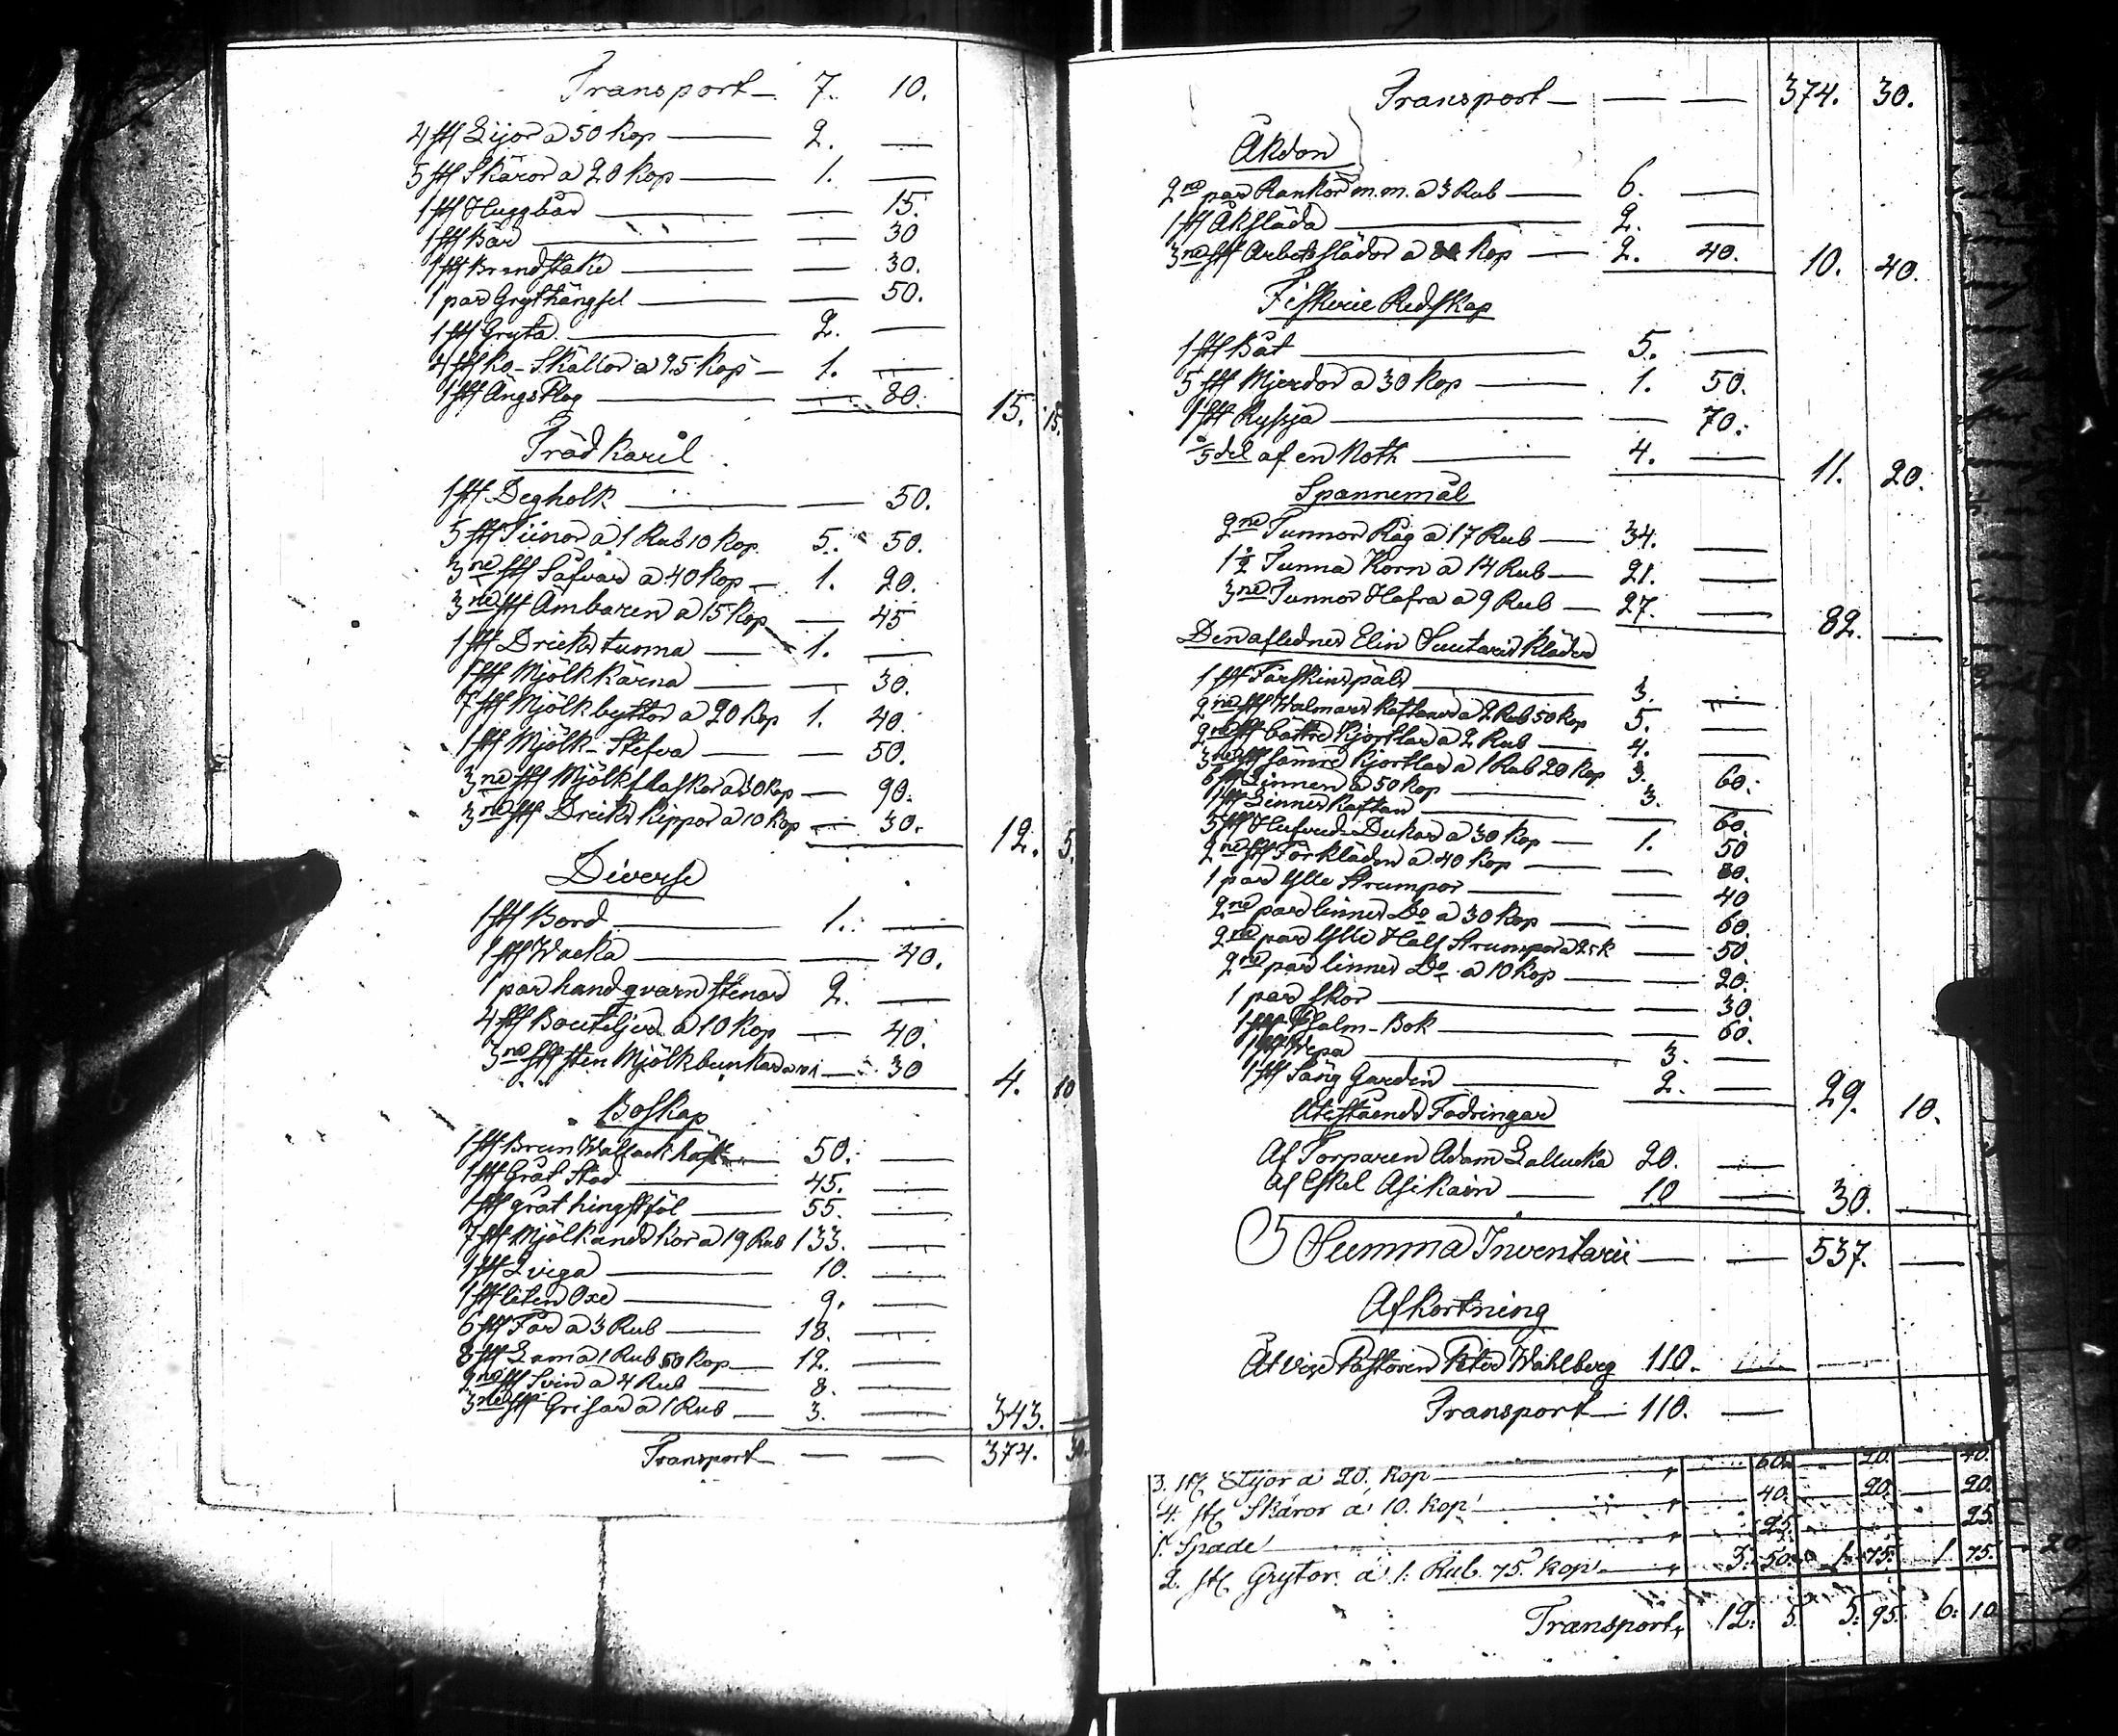 Transport — 7. 10.
4 st Lijor a 50 Kop — 2. —
5 st Skäror a 20 Kop — 1. —
1 st Huggbår — — 15.
1 st Bår — — 30
1 st Brandstake — — 30.
1 par Grythängsel — — 50.
1 st Gryta — 2. —
4 st Ko-Skällor a 25 Kop — 1. —
1 st Ängs Plog — — 80. 15. 15.
Träd Käril
1 st Degholk — — 50.
5 st Tiinor a 1 Rub 10 Kop. 5. 50.
3ne st Såfvar a 40 Kop — 1. 20.
3ne st Ämbaren a 15 Kop — 45
1 st Dricks tunna — 1. —
1 st Mjölk Kärna — — 30.
7 st Mjölkbyttor a 20 Kop 1. 40.
1 st Mjölk-Stefva — — 50.
3ne st Mjölkflaskor a 30 Kop — 90.
3ne st Dricks Kippor a 10 Kop — 30. 12. 5.
Diverse
1 st Bord — 1. —
1 st Wacka — — 40.
1 par handqvarn stenar 2. —
4 st Bouteljer a 10 Kop — 40.
3ne st sten Mjölkbunkar — 30 4. 10
Boskap
1 st Brun Wallack häst — 50. —
1 st Gråt Stod — 45. —
1 st gråt hingstföl — 55. —
7 st Mjölkande Kor a 19 Rub 133. —
1 st Qviga — 10. —
1 st liten Oxe — 9. —
6 st Får a 3 Rub — 18. —
8 st Lam a 1 Rub 50 Kop — 12. —
2ne st Svin a 4 Rub — 8. —
3ne st Grisar a 1 Rub — 3. — 343. —
Transport — — 374. 30.
Transport — — — 374. 30.
Åkdon
2ne par Rankor m.m. a 3 Rub — 6. —
1 st Åksläda — 2. —
3ne st Arbetsslädor a 80 Kop — 2. 40. 10. 40.
Fiskerie Redskap
1 st Båt — 5. —
5 st Mjerdor a 30 Kop — 1. 50.
1 st Ryssja — — 70.
del af en Noth — 4. — 11. 20.
Spannemål
2ne Tunnor Råg a 17 Rub — 34. —
1½ Tunna Korn a 14 Rub — 21. —
3ne Tunnor Hafra a 9 Rub — 27. — 82. —
Den aflednes Elin Suutaris Kläder
1 st Fårskinspäls — 3. —
2ne st Walmars Kaftaner a 2 Rub 50 Kop 5. —
2ne st bättre Kjortlar a 2 Rub — 4. —
3ne st sämre Kjortlar a 1 Rub 20 Kop 3. 60.
6 st Linnen a 50 Kop — 3. —
1 st Linnes Kaftan — — 60.
5 st Hufvud-Dukar a 30 Kop — 1. 50
2ne st Förkläden a 40 Kop — — 80.
1 par Ylle Strumpor — — 40
2ne par linnes Do a 30 Kop — — 60.
2ne par Ylle Half Strumpor a 25 K — 50.
2ne par linnes Do a 10 Kop — — 20.
1 par Skor — — 30.
1 st Psalm-Bok — — 60.
1 st Wepa — 3. —
1 st Säng Gardin — 2. — 29. 10.
Utestående Fodringar
Af Torparen Adam Lallucka 20. —
Af Eskel Asikain — 10 — 30. —
Summa Inventarii — — 537. —
Afkortning
Åt Vice Pastoren Peter Wahlberg 110. —
Transport — 110. —
3. st Lijor a 20. Kop — 60. — 20. — 40.
4. st Skäror á 10. Kop — 40. — 20. — 20.
1. Spade — 25. 25.
2. st Grytor á 1. Rub. 75. Kop — 3. 50. 1. 75. 1. 75.
Transport, 12. 5. 5. 95. 6. 10